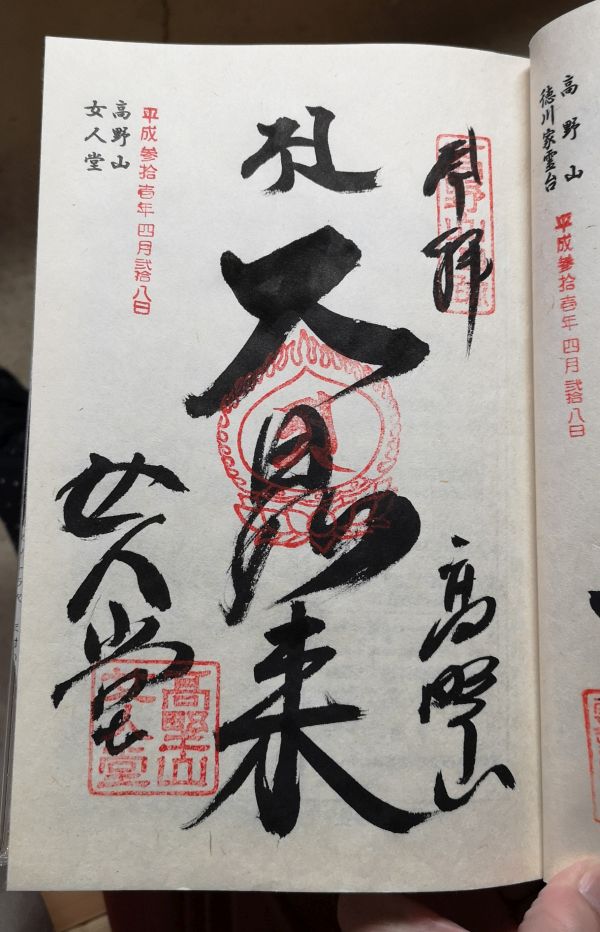 高野山
徳川家霊台
平成参拾壱年四月弐拾八日
奉拝
高野山
大日如来
平成参拾壱年四月弐拾八日
高野山
女人堂
女人堂
高野山
女人堂